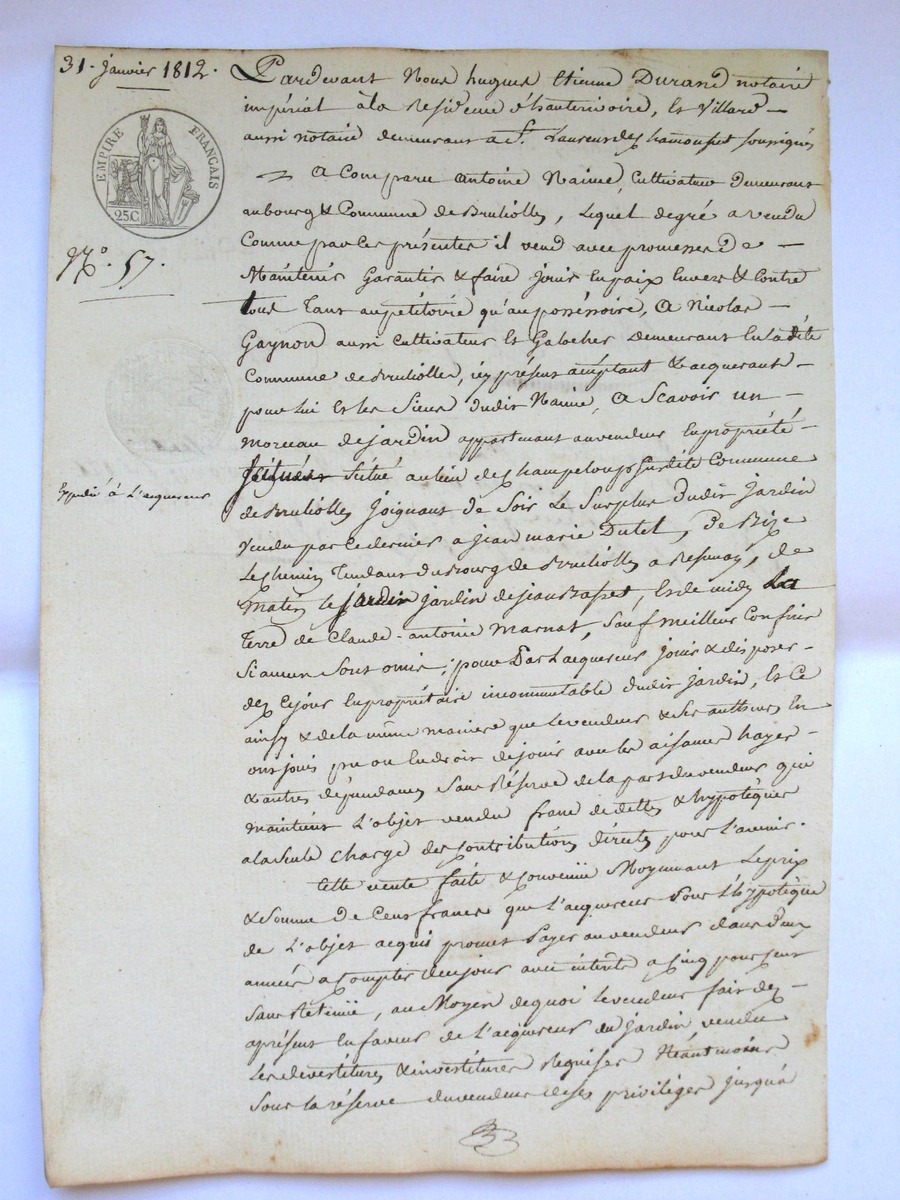 31. Janvier 1812.
EMPIRE FRANÇAIS
25C
N.º 57.
Expédié à L'acquereur
Pardevant Nous hugues Etienne Durand notaire
impérial à la Residence d'hauterivoire, Et Villard —
aussi notaire demeurant a S.t Laurent de chamousset soussignés
A Comparu Antoine Naime, Cultivateur Demeurant
au bourg & Commune de Brullolles, Lequel de gré a vendu
Comme par Ces présentes il vend avec promesse de —
Maintenir Garantir & faire jouir En paix Envers & Contre
tous Tant au pétitoire qu'au posséssoire, A Nicolas —
Gaynon aussi Cultivateur Et Demeurant En la dite
Commune de Brullolles, icy présent acceptant & acquerant —
pour lui Et les Siens dudit Naime, A Scavoir un —
morceau de jardin appartenant au vendeur En propriété —
Situé au lieu de susdite Commune
de Brullolles Joignant de Soir Le Surplus dudit Jardin
vendu par Ce dernier a jean marie Dutel, de Bize
Le chemin Tendant du Bourg de Brullolles a de
matin le jardin de jean Et de midy La
Terre de Claude-antoine Marnat, Sauf meilleurs Confins
Si aucun Sont omis; pour Par L'acquereur jouir & disposer —
dez Ce jour En propriétaire incommutable dudit jardin, Et Ce
ainsy & de la même maniere que le vendeur & Ses autheurs En
ont joui pu ou En droit de jouir avec les aisances hayes —
& autres dépendances Sans Réserve de la part du vendeur qui
maintient L'objet vendu franc de dettes & hypotèques
a la Seule charge des Contributions directes pour L'avenir.
Cette vente faite & Convenüe Moyennant Le prix
& Somme de Cent francs que L'acquereur Sous L'hypotèque
de L'objet acquis promet Payer au vendeur dans Deux
années a Compter de Ce jour avec interêts a Cinq pour Cent
Sans Retenüe, au Moyen de quoi Le vendeur fait dez —
apresent En faveur de L'acquereur du jardin vendu
Les devestitures & investitures Requises Néantmoins
Sous la réserve du vendeur de Ses priviléges jusqu'à